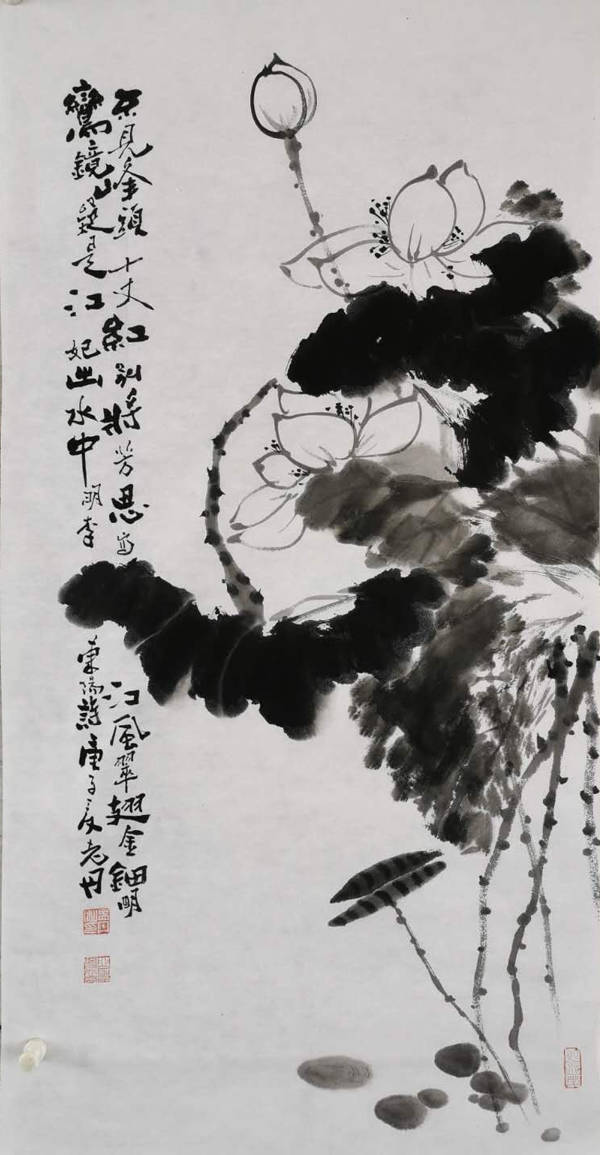 不見峰頭十丈紅别將芳思寫江風翠翘金鈿明
鸞鏡疑是江妃出水中明李東陽詩庚子夏老丹